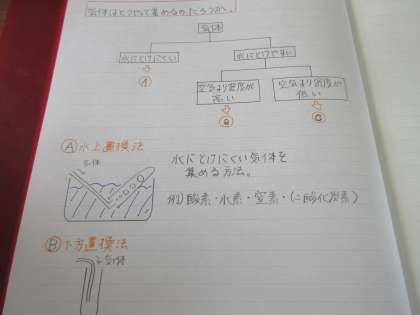 気体はどうやって集めるのだろうか。
気体
水にとけにくい
水にとけやすい
Ⓐ
空気より密度が
高い
空気より密度が
低い
Ⓑ
Ⓒ
Ⓐ水上置換法
気体
水にとけにくい気体を
集める方法。
例)酸素・水素・窒素・(二酸化炭素)
Ⓑ下方置換法
気体